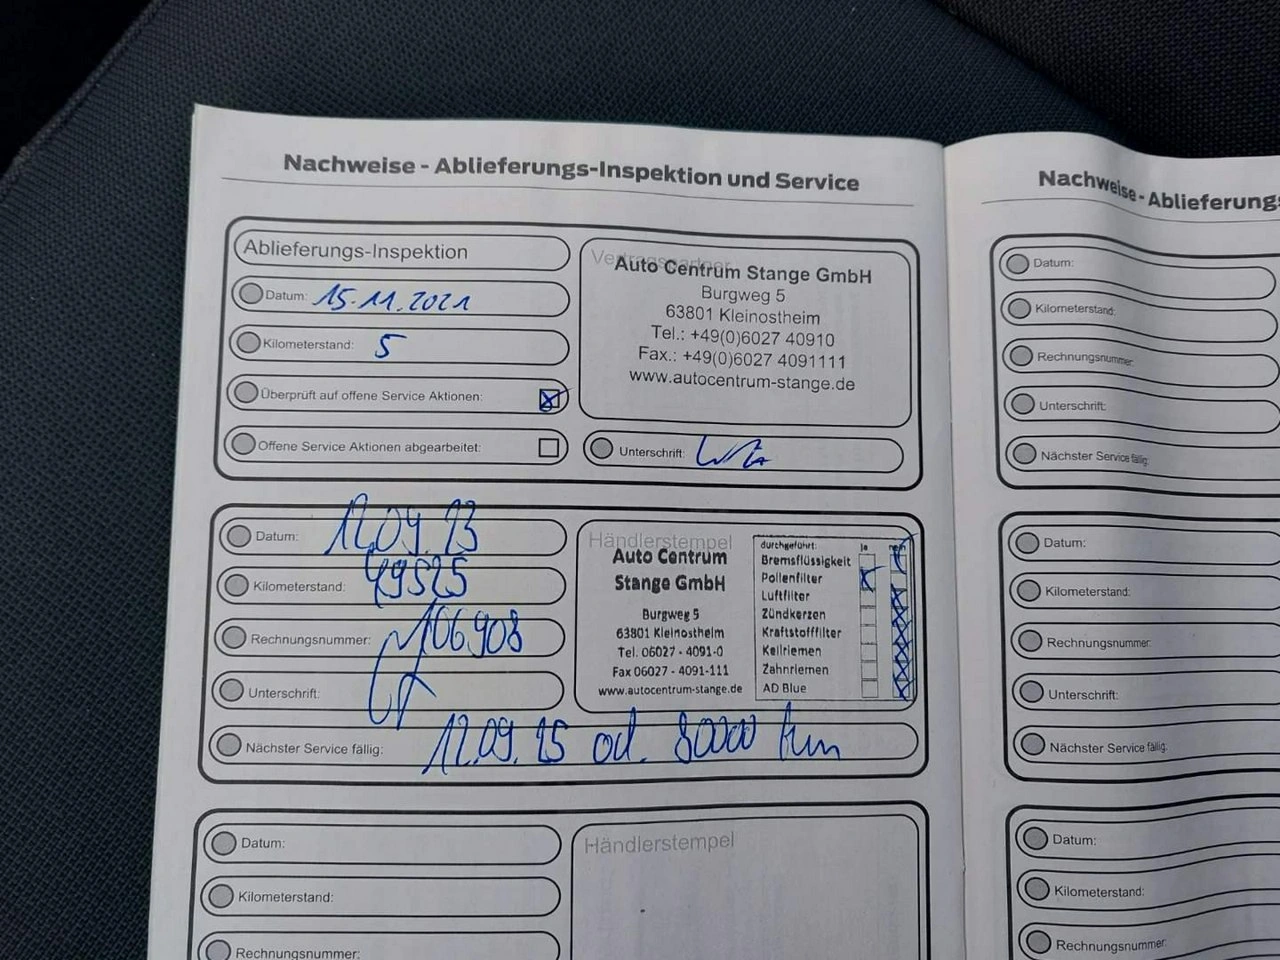 Nachweise - Ablieferungs-Inspektion und Service
Ablieferungs-Inspektion
Datum: 15.11.2021
Kilometerstand: 5
Überprüft auf offene Service Aktionen:
Offene Service Aktionen abgearbeitet:
Vertragspartner
Auto Centrum Stange GmbH
Burgweg 5
63801 Kleinostheim
Tel.: +49(0)6027 40910
Fax.: +49(0)6027 4091111
www.autocentrum-stange.de
Unterschrift:
Datum: 12.09.23
Kilometerstand: 49525
Rechnungsnummer: 106908
Unterschrift:
Händlerstempel
Auto Centrum
Stange GmbH
Burgweg 5
63801 Kleinostheim
Tel. 06027 - 4091-0
Fax 06027 - 4091-111
www.autocentrum-stange.de
durchgeführt: ja nein
Bremsflüssigkeit
Pollenfilter
Luftfilter
Zündkerzen
Kraftstofffilter
Keilriemen
Zahnriemen
AD Blue
Nächster Service fällig: 12.09.25 od. 80000 km
Datum:
Kilometerstand:
Rechnungsnummer:
Händlerstempel
Nachweise - Ablieferungs
Datum:
Kilometerstand:
Rechnungsnummer:
Unterschrift:
Nächster Service fällig:
Datum:
Kilometerstand:
Rechnungsnummer:
Unterschrift:
Nächster Service fällig:
Datum:
Kilometerstand:
Rechnungsnummer: